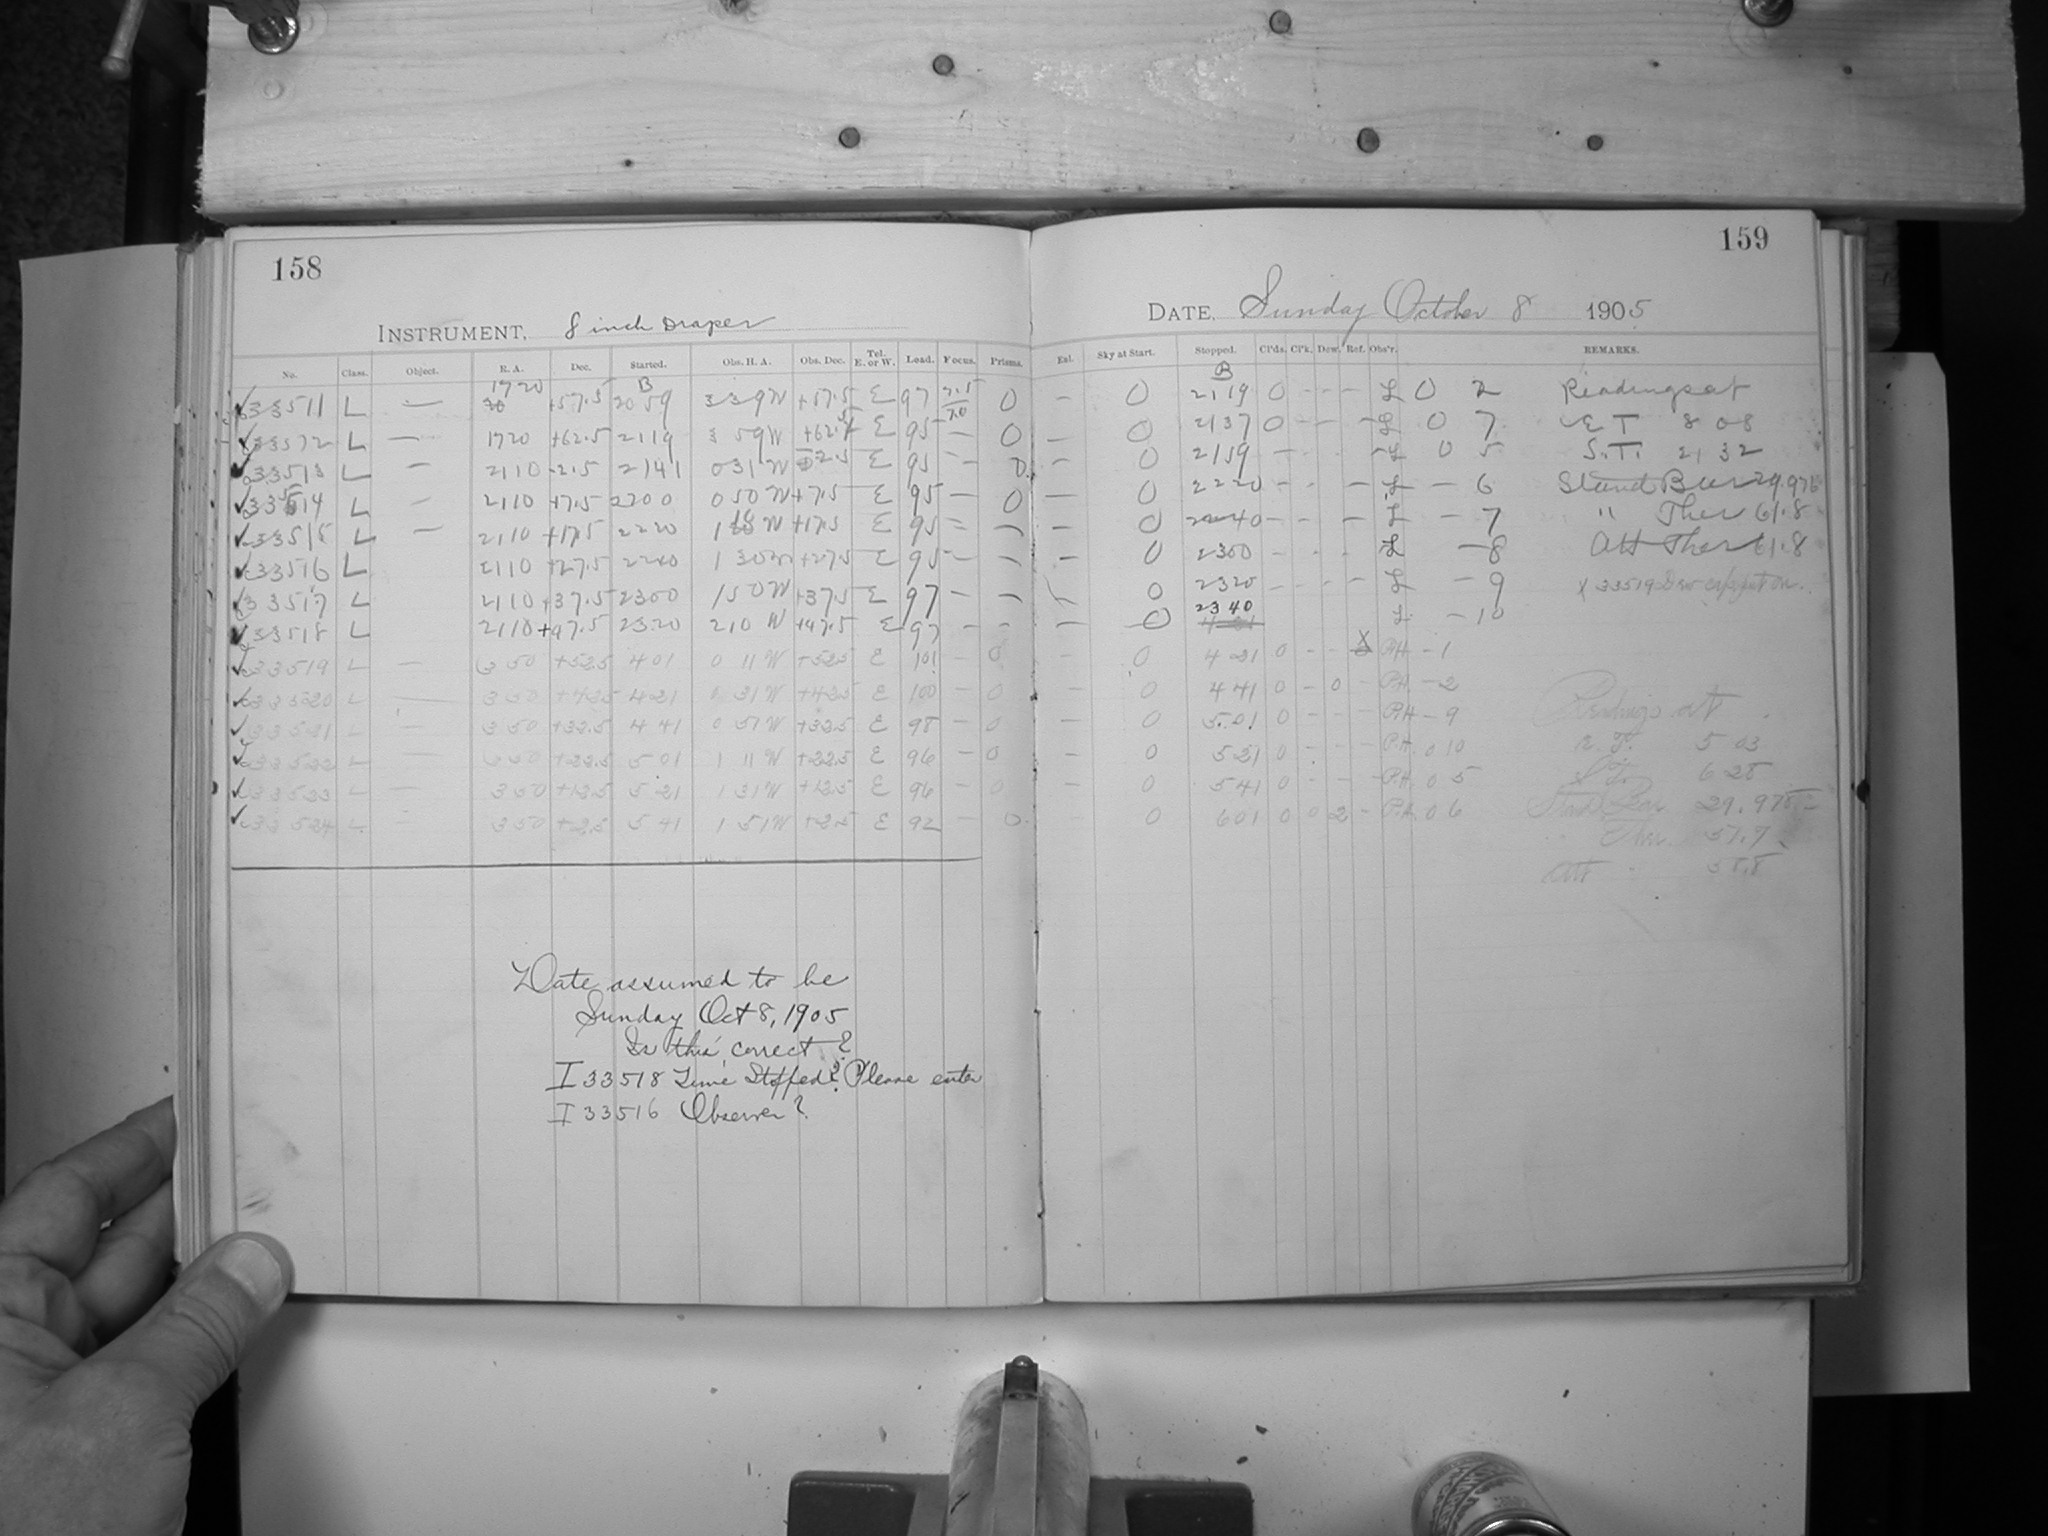 158
INSTRUMENT, 8 inch Draper
No. Class. Object. R. A. Dec. Started. Obs. H. A. Obs. Dec. Tel. E. or W. Load. Focus. Prisms.
1720 B
33511 L — +57.5 2059 3 39 W +57.5 E 97 0
L — 1720 +62.5 2119 3 59 W +62.5 E 95 — 0
33513 L — 2110 -2.5 2141 0 31 W E 95 — 0
L — 2110 +7.5 0 50 W +7.5 E 95 — 0
33515 L — 2110 +17.5 2220 W +17.5 E 95 — —
33516 L 2110 +27.5 2240 1 30 W +27.5 E 95 — —
33517 L 2110 +37.5 2300 1 50 W +37.5 E 97 — —
33518 L 2110 +47.5 2320 2 10 W +47.5 E 97 — —
33519 L — 350 +52.5 401 0 11 W +52.5 E 101 — 0
33520 L — 350 +42.5 421 0 31 W +42.5 E 100 — 0
33521 L — 350 +32.5 441 0 51 W +32.5 E 98 — 0
33522 L — 350 +22.5 501 1 11 W +22.5 E 96 — 0
33523 L — 350 +12.5 521 1 31 W +12.5 E 96 — 0
33524 L — 350 +2.5 541 1 51 W +2.5 E 92 — 0
Date assumed to be
Sunday Oct 8, 1905
Is this correct?
I 33518 Time Stopped? Please enter
I 33516 Observer?
159
DATE, Sunday October 8 1905
Exl. Sky at Start. Stopped. Cl'ds. Cl'k. Dew. Ref. Obs'r. REMARKS.
B
— 0 2119 0 - - - L 0 2 Readings at
— 0 2137 0 - - - L 0 7 E T 8 08
— 0 2159 - - - L 0 5 S.T. 21 32
— 0 2220 - - - L - 6 Stand Bar 29.976
0 2240 - - - L - 7 " Ther 61.8
0 2300 - - - L - 8 Att Ther 61.8
0 2320 - - - - L - 9 x 33519 Dew
— 0 2340 L - 10
— 0 421 0 - - x P.H - 1
— 0 441 0 - 0 - P.H - 2
— 0 501 0 - - - P.H - 9 Readings at
— 0 521 0 - - - P.H. 0 10 E. T. 5 03
— 0 541 0 - - - P.H. 0 5 S T. 6 28
0 601 0 0 2 - P.H. 0 6 Stand Bar 29.975
Ther. 57.7
Att " 58.8